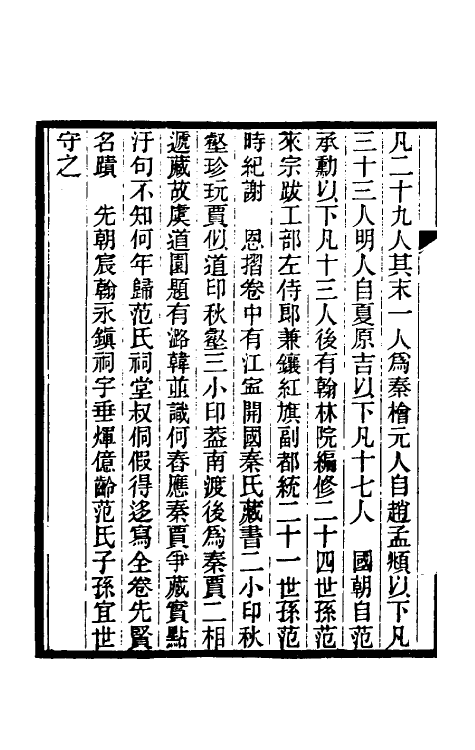 凡二十九人其末一人為秦檜元人自趙孟頫以下凡
三十三人明人自夏原吉以下凡十七人　國朝自范
承勳以下凡十三人後有翰林院編修二十四世孫范
來宗跋工部左侍郎兼鑲紅旗副都統二十一世孫范
時紀謝　恩摺卷中有江寍開國秦氏藏書二小印秋
壑珍玩賈似道印秋壑三小印葢南渡後為秦賈二相
遞藏故虞道園題有潞韓並識何舂應秦賈爭藏實點
汙句不知何年歸范氏祠堂叔侗假得迻寫全卷先賢
名蹟　先朝宸翰永鎮祠宇垂煇億齡范氏子孫宜世
守之